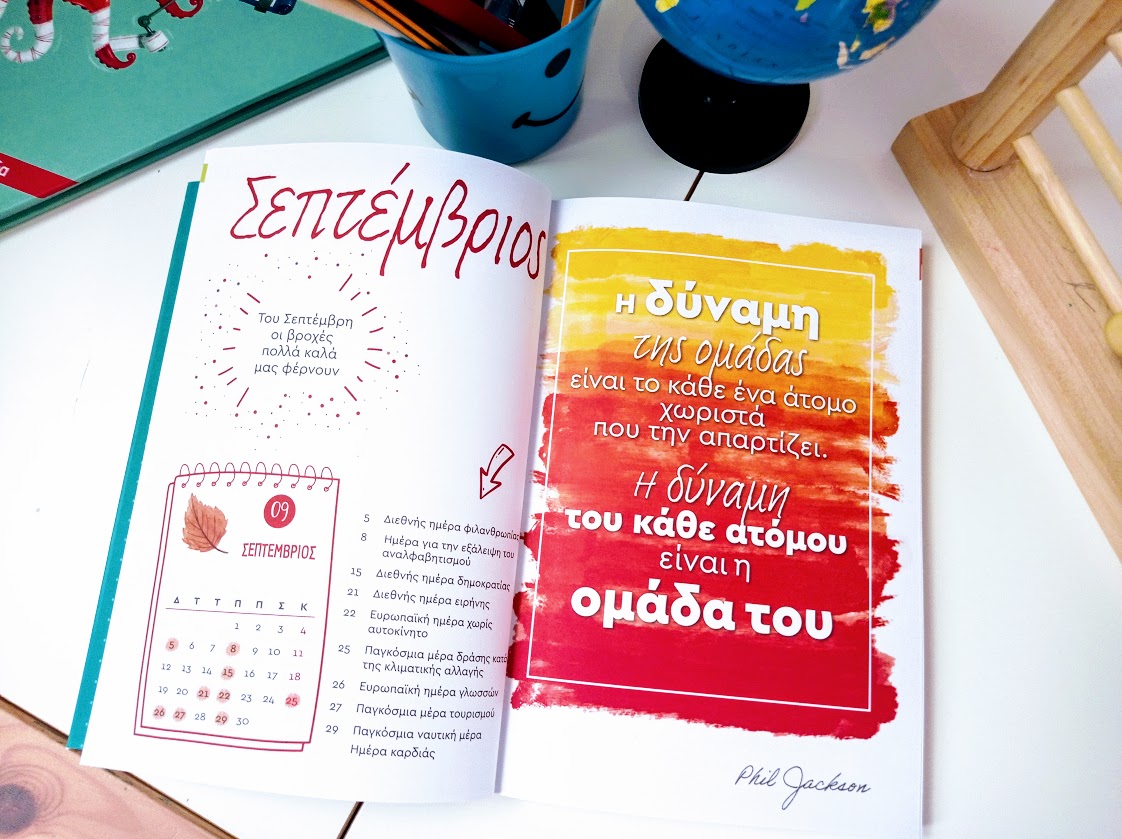 Σεπτέμβριος
Του Σεπτέμβρη
οι βροχές
πολλά καλά
μας φέρνουν
09
ΣΕΠΤΕΜΒΡΙΟΣ
Δ Τ Τ Π Π Σ Κ
1 2 3 4
5 6 7 8 9 10 11
12 13 14 15 16 17 18
19 20 21 22 23 24 25
26 27 28 29 30
5 Διεθνής ημέρα φιλανθρωπίας
8 Ημέρα για την εξάλειψη του
αναλφαβητισμού
15 Διεθνής ημέρα δημοκρατίας
21 Διεθνής ημέρα ειρήνης
22 Ευρωπαϊκή ημέρα χωρίς
αυτοκίνητο
25 Παγκόσμια μέρα δράσης κατά
της κλιματικής αλλαγής
26 Ευρωπαϊκή ημέρα γλωσσών
27 Παγκόσμια μέρα τουρισμού
29 Παγκόσμια ναυτική μέρα
Ημέρα καρδιάς
Η δύναμη
της ομάδας
είναι το κάθε ένα άτομο
χωριστά
που την απαρτίζει.
Η δύναμη
του κάθε ατόμου
είναι η
ομάδα του
Phil Jackson